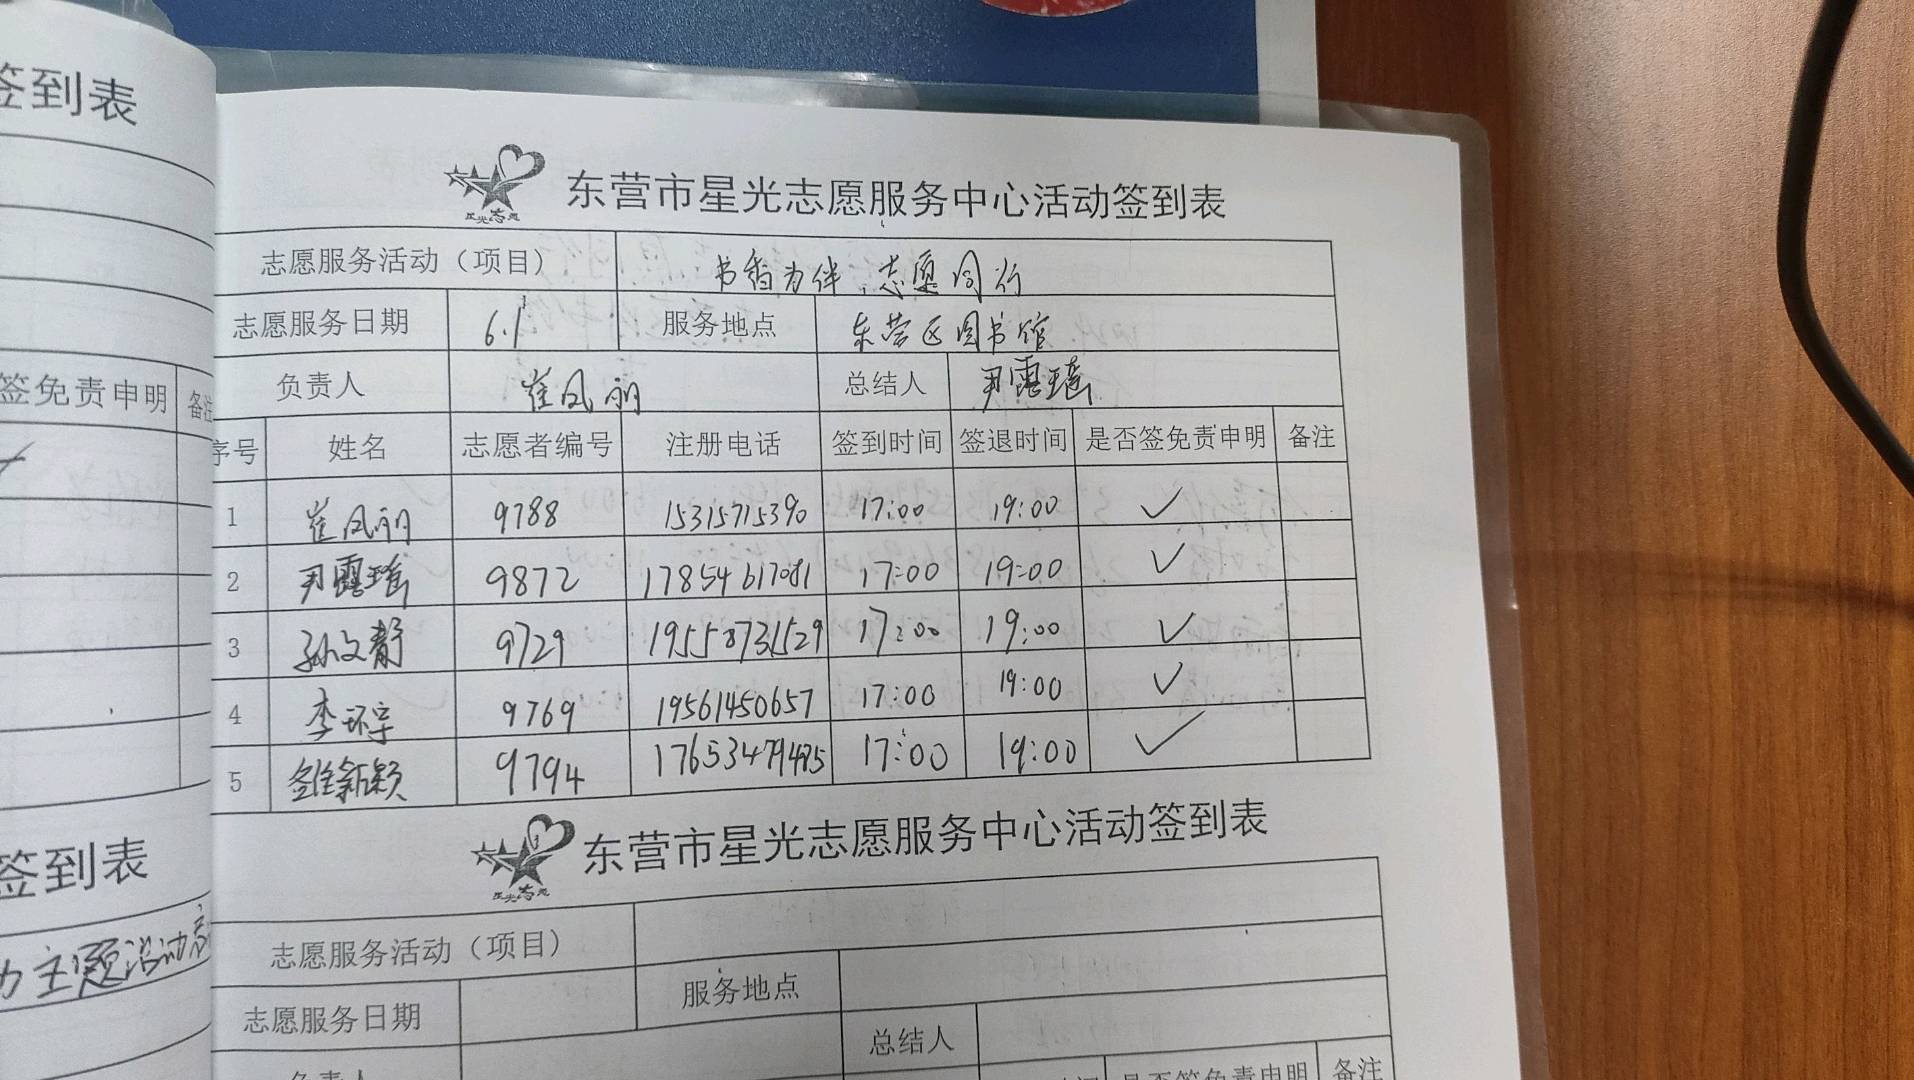 签到表
签免责申明 备注
签到表
主题活动
东营市星光志愿服务中心活动签到表
星光志愿
志愿服务活动（项目） 书香为伴，志愿同行
志愿服务日期 6.1 服务地点 东营区图书馆
负责人 崔凤丽 总结人 尹露瑶
序号 姓名 志愿者编号 注册电话 签到时间 签退时间 是否签免责申明 备注
1 崔凤丽 9788 15315715390 17:00 19:00 ✓
2 尹露瑶 9872 17854617081 17:00 19:00 ✓
3 孙文静 9729 19558731529 17:00 19:00 ✓
4 李环宇 9769 19561450657 17:00 19:00 ✓
5 新颖 9794 17653479485 17:00 19:00 ✓
东营市星光志愿服务中心活动签到表
星光志愿
志愿服务活动（项目）
志愿服务日期 服务地点
负责人 总结人
是否签免责申明 备注